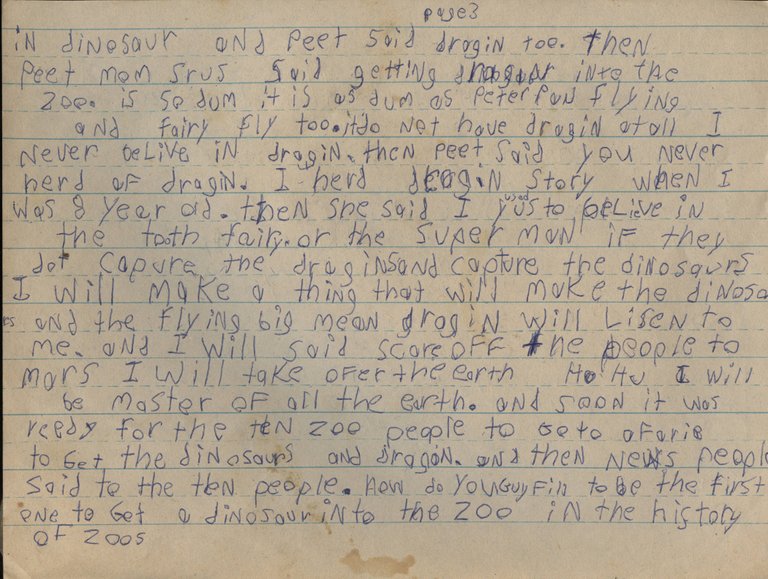 page3
in dinosaur and Peet said dragin too. then
Peet mom srus said getting into the
zoo. is so dum it is as dum as Peter Pan flying
and fairy fly too. it do not have dragin at all I
never beLive in dragin. then Peet said you never
herd of dragin. I herd dragin story when I
was 8 year old. then she said I yus to beLieve in
the toth fairy. or the super man if they
dot capure the draginsand capture the dinosaurs
I will make a thing that will make the dinosa
rs and the flying big mean dragin will Lisen to
me. and I will said scare off the people to
mars I will take ofer the earth Ha Ha I will
be master of all the earth. and soon it was
reedy for the ten zoo people to Go to afaric
to Get the dinosaurs and dragon. and then News peopl
said to the ten people. how do you Guy Fin to be the first
one to Get a dinosaur into the zoo in the history
of zoos